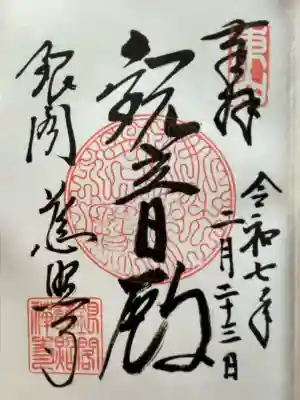 奉拝
令和七年
二月二十三日
観音殿
銀閣 慈照寺